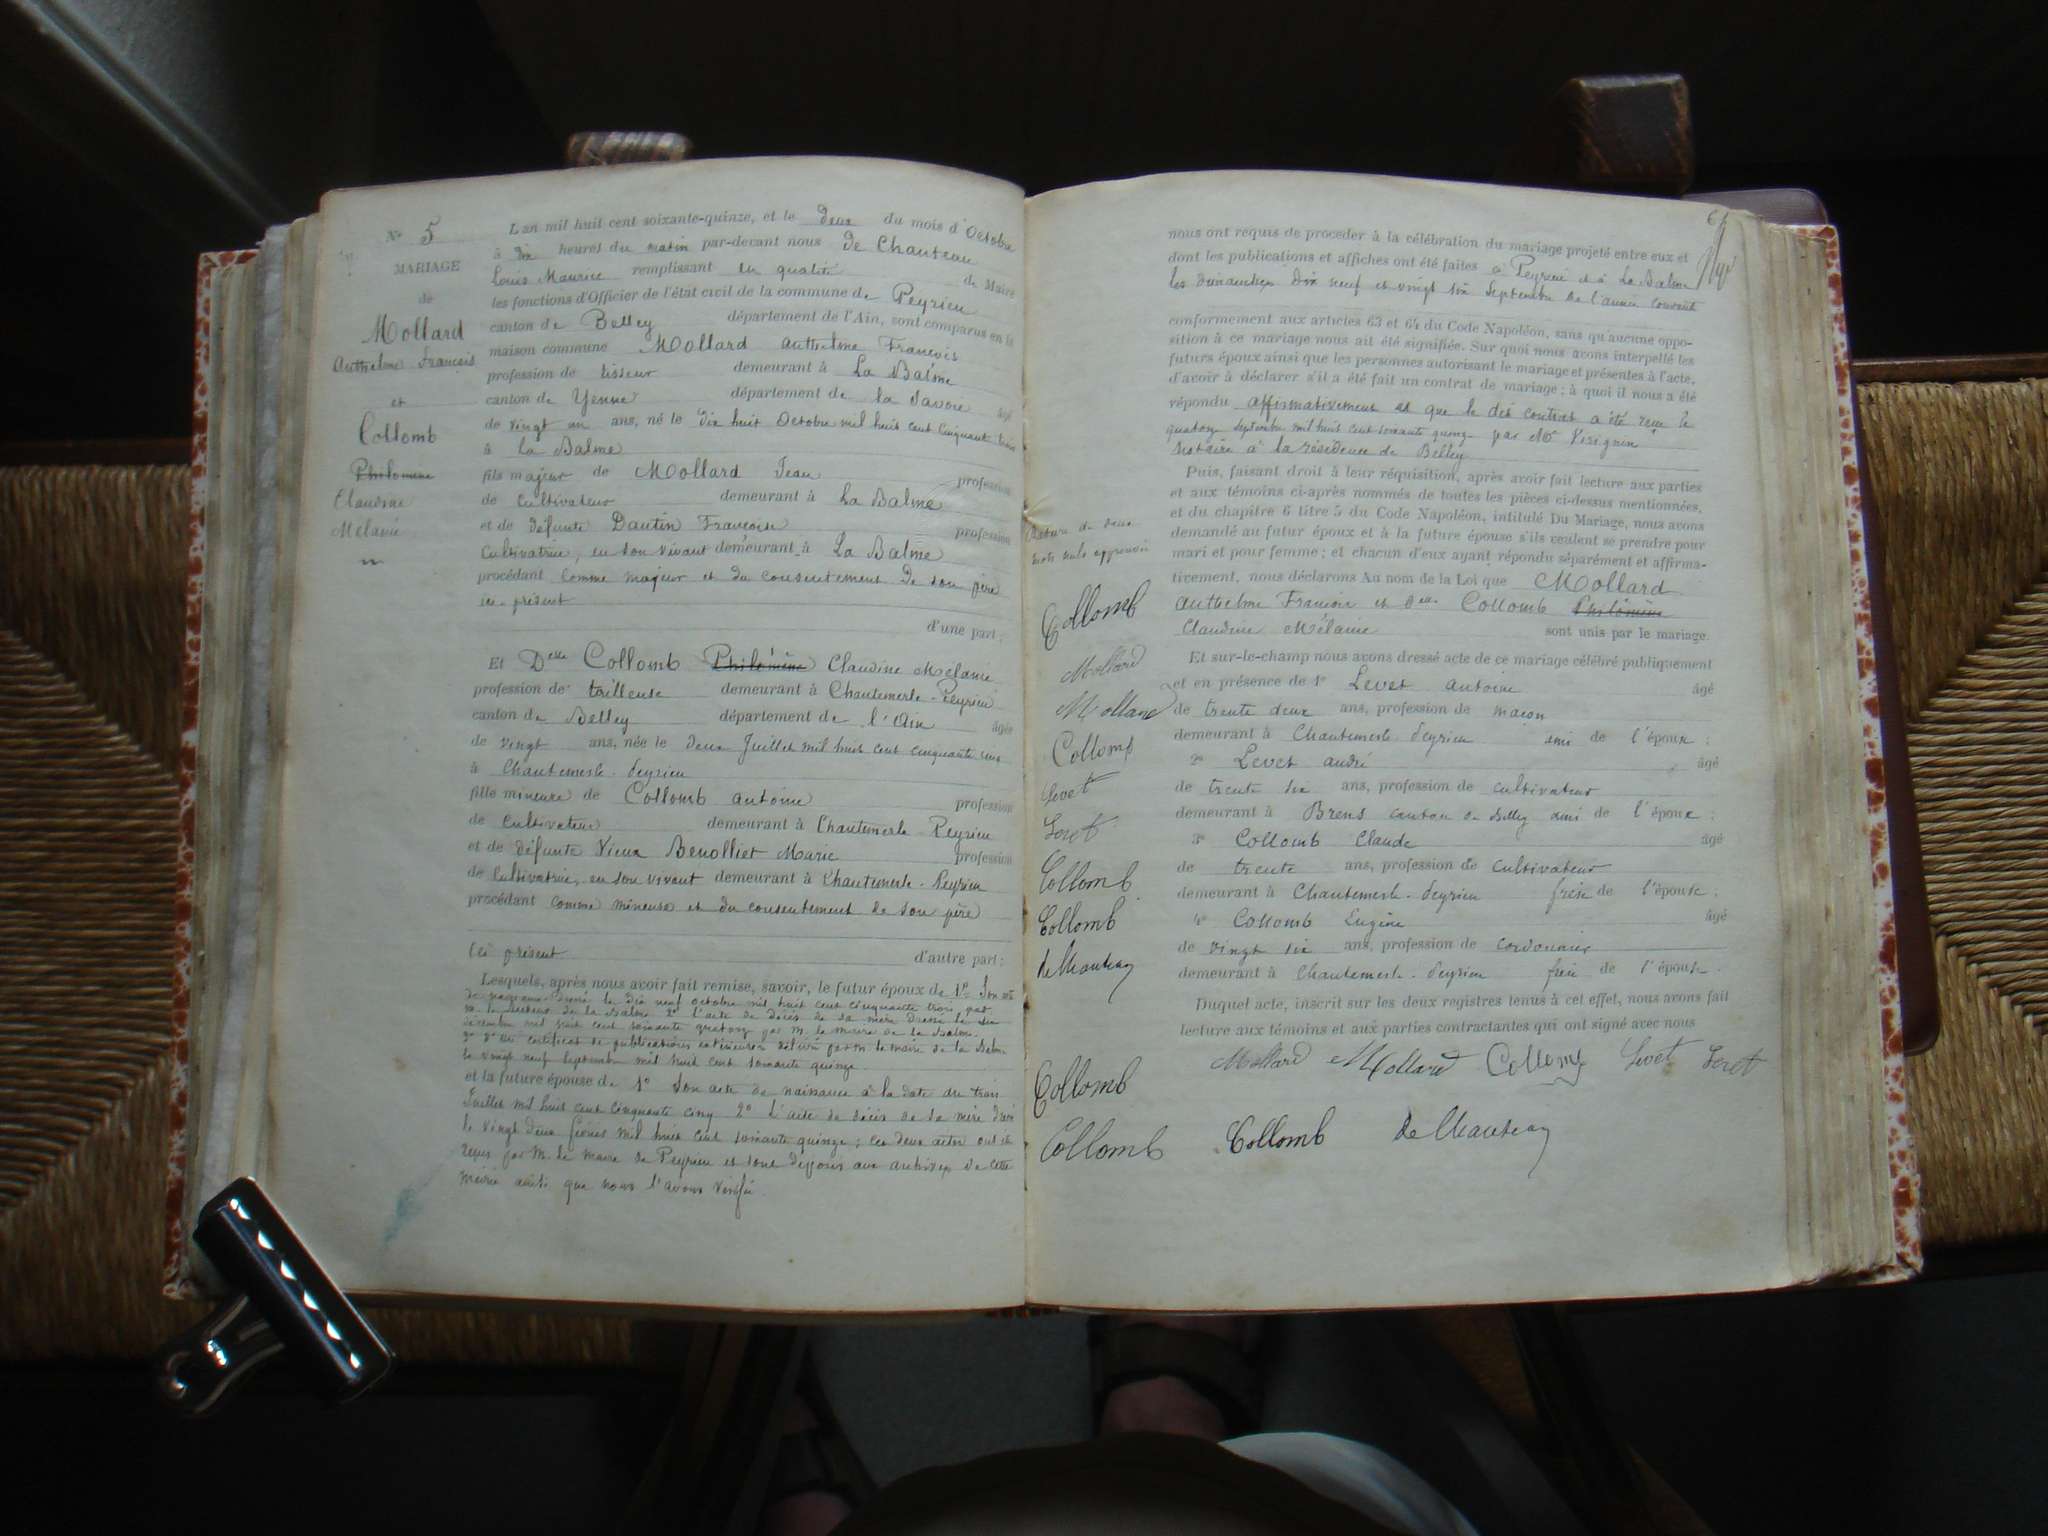 N° 5
MARIAGE
de
Mollard
Anthelme François
et
Collomb
Philomène
Claudine
Mélanie
L'an mil huit cent soixante-quinze, et le deux du mois d'Octobre
à dix heures du matin par-devant nous de Chauteau
Louis Maurice remplissant en qualité de Maire
les fonctions d'Officier de l'état civil de la commune de Peyrieu
canton de Belley département de l'Ain, sont comparus en la
maison commune Mollard Anthelme François
profession de tisseur demeurant à La Balme
canton de Yenne département de la Savoie âgé
de vingt un ans, né le dix huit Octobre mil huit cent cinquante trois
à La Balme
fils majeur de Mollard Jean profession
de Cultivateur demeurant à La Balme
et de défunte Dantin Françoise profession
Cultivatrice, en son vivant demeurant à La Balme
procédant comme majeur et du consentement de son père
ici présent
d'une part;
Et Delle Collomb Philomène Claudine Mélanie
profession de tailleuse demeurant à Chantemerle-Peyrieu
canton de Belley département de l'Ain âgée
de vingt ans, née le deux Juillet mil huit cent cinquante cinq
à Chantemerle-Peyrieu
fille mineure de Collomb Antoine profession
de Cultivateur demeurant à Chantemerle Peyrieu
et de défunte Vieux Benolliet Marie profession
de Cultivatrice, en son vivant demeurant à Chantemerle-Peyrieu
procédant comme mineure et du consentement de son père
ici présent d'autre part;
Lesquels, après nous avoir fait remise, savoir, le futur époux de 1° Son acte
de naissance dressé le dix neuf octobre mil huit cent cinquante trois par
M. le Recteur de la Balme 2° l'acte de décès de sa mère dressé le six
décembre mil huit cent soixante quatorze par M. le Maire de la Balme.
3° D'un certificat de publications extérieures délivré par M. le Maire de la Balme
le vingt neuf Septembre mil huit cent soixante quinze.
et la future épouse de 1° Son acte de naissance à la date du trois
Juillet mil huit cent cinquante cinq 2° L'acte de décès de sa mère dressé
le vingt deux février mil huit cent soixante quinze; ces deux actes ont été
reçus par M. le Maire de Peyrieu et sont déposés aux archives de cette
mairie ainsi que nous l'avons vérifié.
nous ont requis de procéder à la célébration du mariage projeté entre eux et
dont les publications et affiches ont été faites à Peyrieu et à La Balme
les dimanches dix neuf et vingt six Septembre de l'année courante
conformément aux articles 63 et 64 du Code Napoléon, sans qu'aucune oppo-
sition à ce mariage nous ait été signifiée. Sur quoi nous avons interpellé les
futurs époux ainsi que les personnes autorisant le mariage et présentes à l'acte,
d'avoir à déclarer s'il a été fait un contrat de mariage; à quoi il nous a été
répondu affirmativement et que le dit contrat a été reçu le
quatorze septembre mil huit cent soixante quinze par Me
notaire à la résidence de Belley
Puis, faisant droit à leur réquisition, après avoir fait lecture aux parties
et aux témoins ci-après nommés de toutes les pièces ci-dessus mentionnées,
et du chapitre 6 titre 5 du Code Napoléon, intitulé Du Mariage, nous avons
demandé au futur époux et à la future épouse s'ils veulent se prendre pour
mari et pour femme; et chacun d'eux ayant répondu séparément et affirma-
tivement, nous déclarons Au nom de la Loi que Mollard
Anthelme François et Delle Collomb Philomène
Claudine Mélanie sont unis par le mariage.
Et sur-le-champ nous avons dressé acte de ce mariage célébré publiquement
et en présence de 1° Levet Antoine âgé
de trente deux ans, profession de maçon
demeurant à Chantemerle-Peyrieu ami de l'époux;
2° Levet André âgé
de trente six ans, profession de cultivateur
demeurant à Brens canton de Belley ami de l'époux;
3° Collomb Claude âgé
de trente ans, profession de cultivateur
demeurant à Chantemerle-Peyrieu frère de l'épouse;
4° Collomb Eugène âgé
de vingt six ans, profession de cordonnier
demeurant à Chantemerle-Peyrieu frère de l'épouse.
Duquel acte, inscrit sur les deux registres tenus à cet effet, nous avons fait
lecture aux témoins et aux parties contractantes qui ont signé avec nous
Mollard Mollard Collomb Levet Levet
Collomb Collomb de Chauteau
Rature de deux
mots nuls approuvée
Collomb
Mollard
Mollard
Collomb
Levet
Levet
Collomb
Collomb
de Chauteau
Collomb